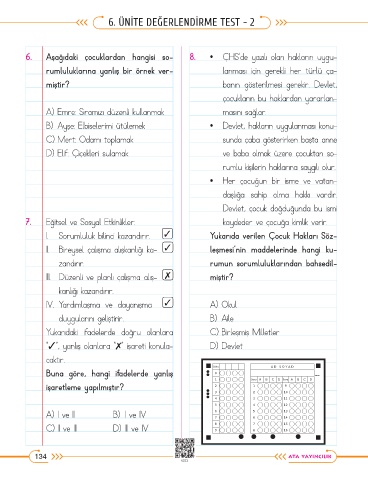 6. ÜNİTE DEĞERLENDİRME TEST - 2
6. Aşağıdaki çocuklardan hangisi so-
rumluluklarına yanlış bir örnek ver-
miştir?
A) Emre: Sıramızı düzenli kullanmak
B) Ayşe: Elbiselerimi ütülemek
C) Mert: Odamı toplamak
D) Elif: Çiçekleri sulamak
7. Eğitsel ve Sosyal Etkinlikler;
I. Sorumluluk bilinci kazandırır. ✓
II. Bireysel çalışma alışkanlığı ka- ✓
zandırır.
III. Düzenli ve planlı çalışma alış- ✗
kanlığı kazandırır.
IV. Yardımlaşma ve dayanışma ✓
duygularını geliştirir.
Yukarıdaki ifadelerde doğru olanlara
"✓", yanlış olanlara "✗" işareti konula-
caktır.
Buna göre, hangi ifadelerde yanlış
işaretleme yapılmıştır?
A) I ve II B) I ve IV
C) II ve III D) III ve IV
8. • ÇHS'de yazılı olan hakların uygu-
lanması için gerekli her türlü ça-
banın gösterilmesi gerekir. Devlet,
çocukların bu haklardan yararlan-
masını sağlar.
• Devlet, hakların uygulanması konu-
sunda çaba gösterirken başta anne
ve baba olmak üzere çocuktan so-
rumlu kişilerin haklarına saygılı olur.
• Her çocuğun bir isme ve vatan-
daşlığa sahip olma hakkı vardır.
Devlet, çocuk doğduğunda bu ismi
kaydeder ve çocuğa kimlik verir.
Yukarıda verilen Çocuk Hakları Söz-
leşmesi'nin maddelerinde hangi ku-
rumun sorumluluklarından bahsedil-
miştir?
A) Okul
B) Aile
C) Birleşmiş Milletler
D) Devlet
AD SOYAD
134
ATA YAYINCILIK